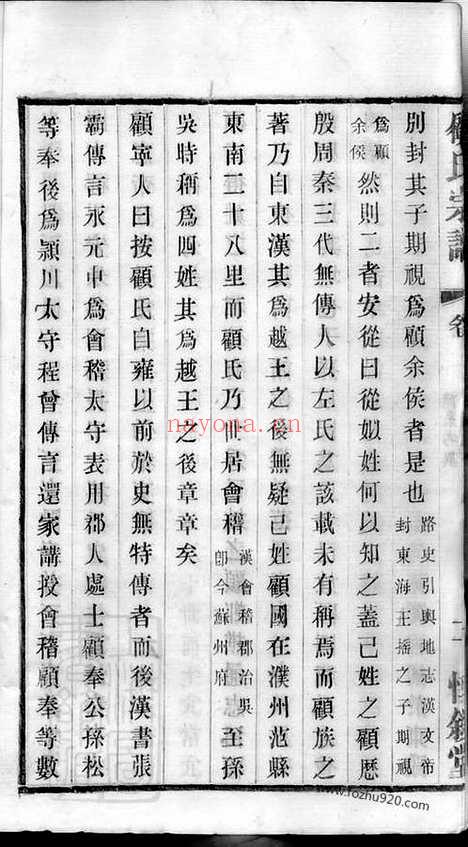 顧氏宗譜
卷
別封其子期視爲顧余侯者是也 路史引輿地志漢文帝封東海王搖之子期視
爲顧余侯 然則二者安從曰從姒姓何以知之蓋己姓之顧歷
殷周秦三代無傳人以左氏之該載未有稱焉而顧族之
著乃自東漢其爲越王之後無疑己姓顧國在濮州范縣
東南二十八里而顧氏乃世居會稽 漢會稽郡治吳卽今蘇州府 至孫
吳時稱爲四姓其爲越王之後章章矣
顧寧人曰按顧氏自雍以前於史無特傳者而後漢書張
霸傳言永元中爲會稽太守表用郡人處士顧奉公孫松
等奉後爲潁川太守程曾傳言還家講授會稽顧奉等數
nayona.cn
www.fozhu920.com